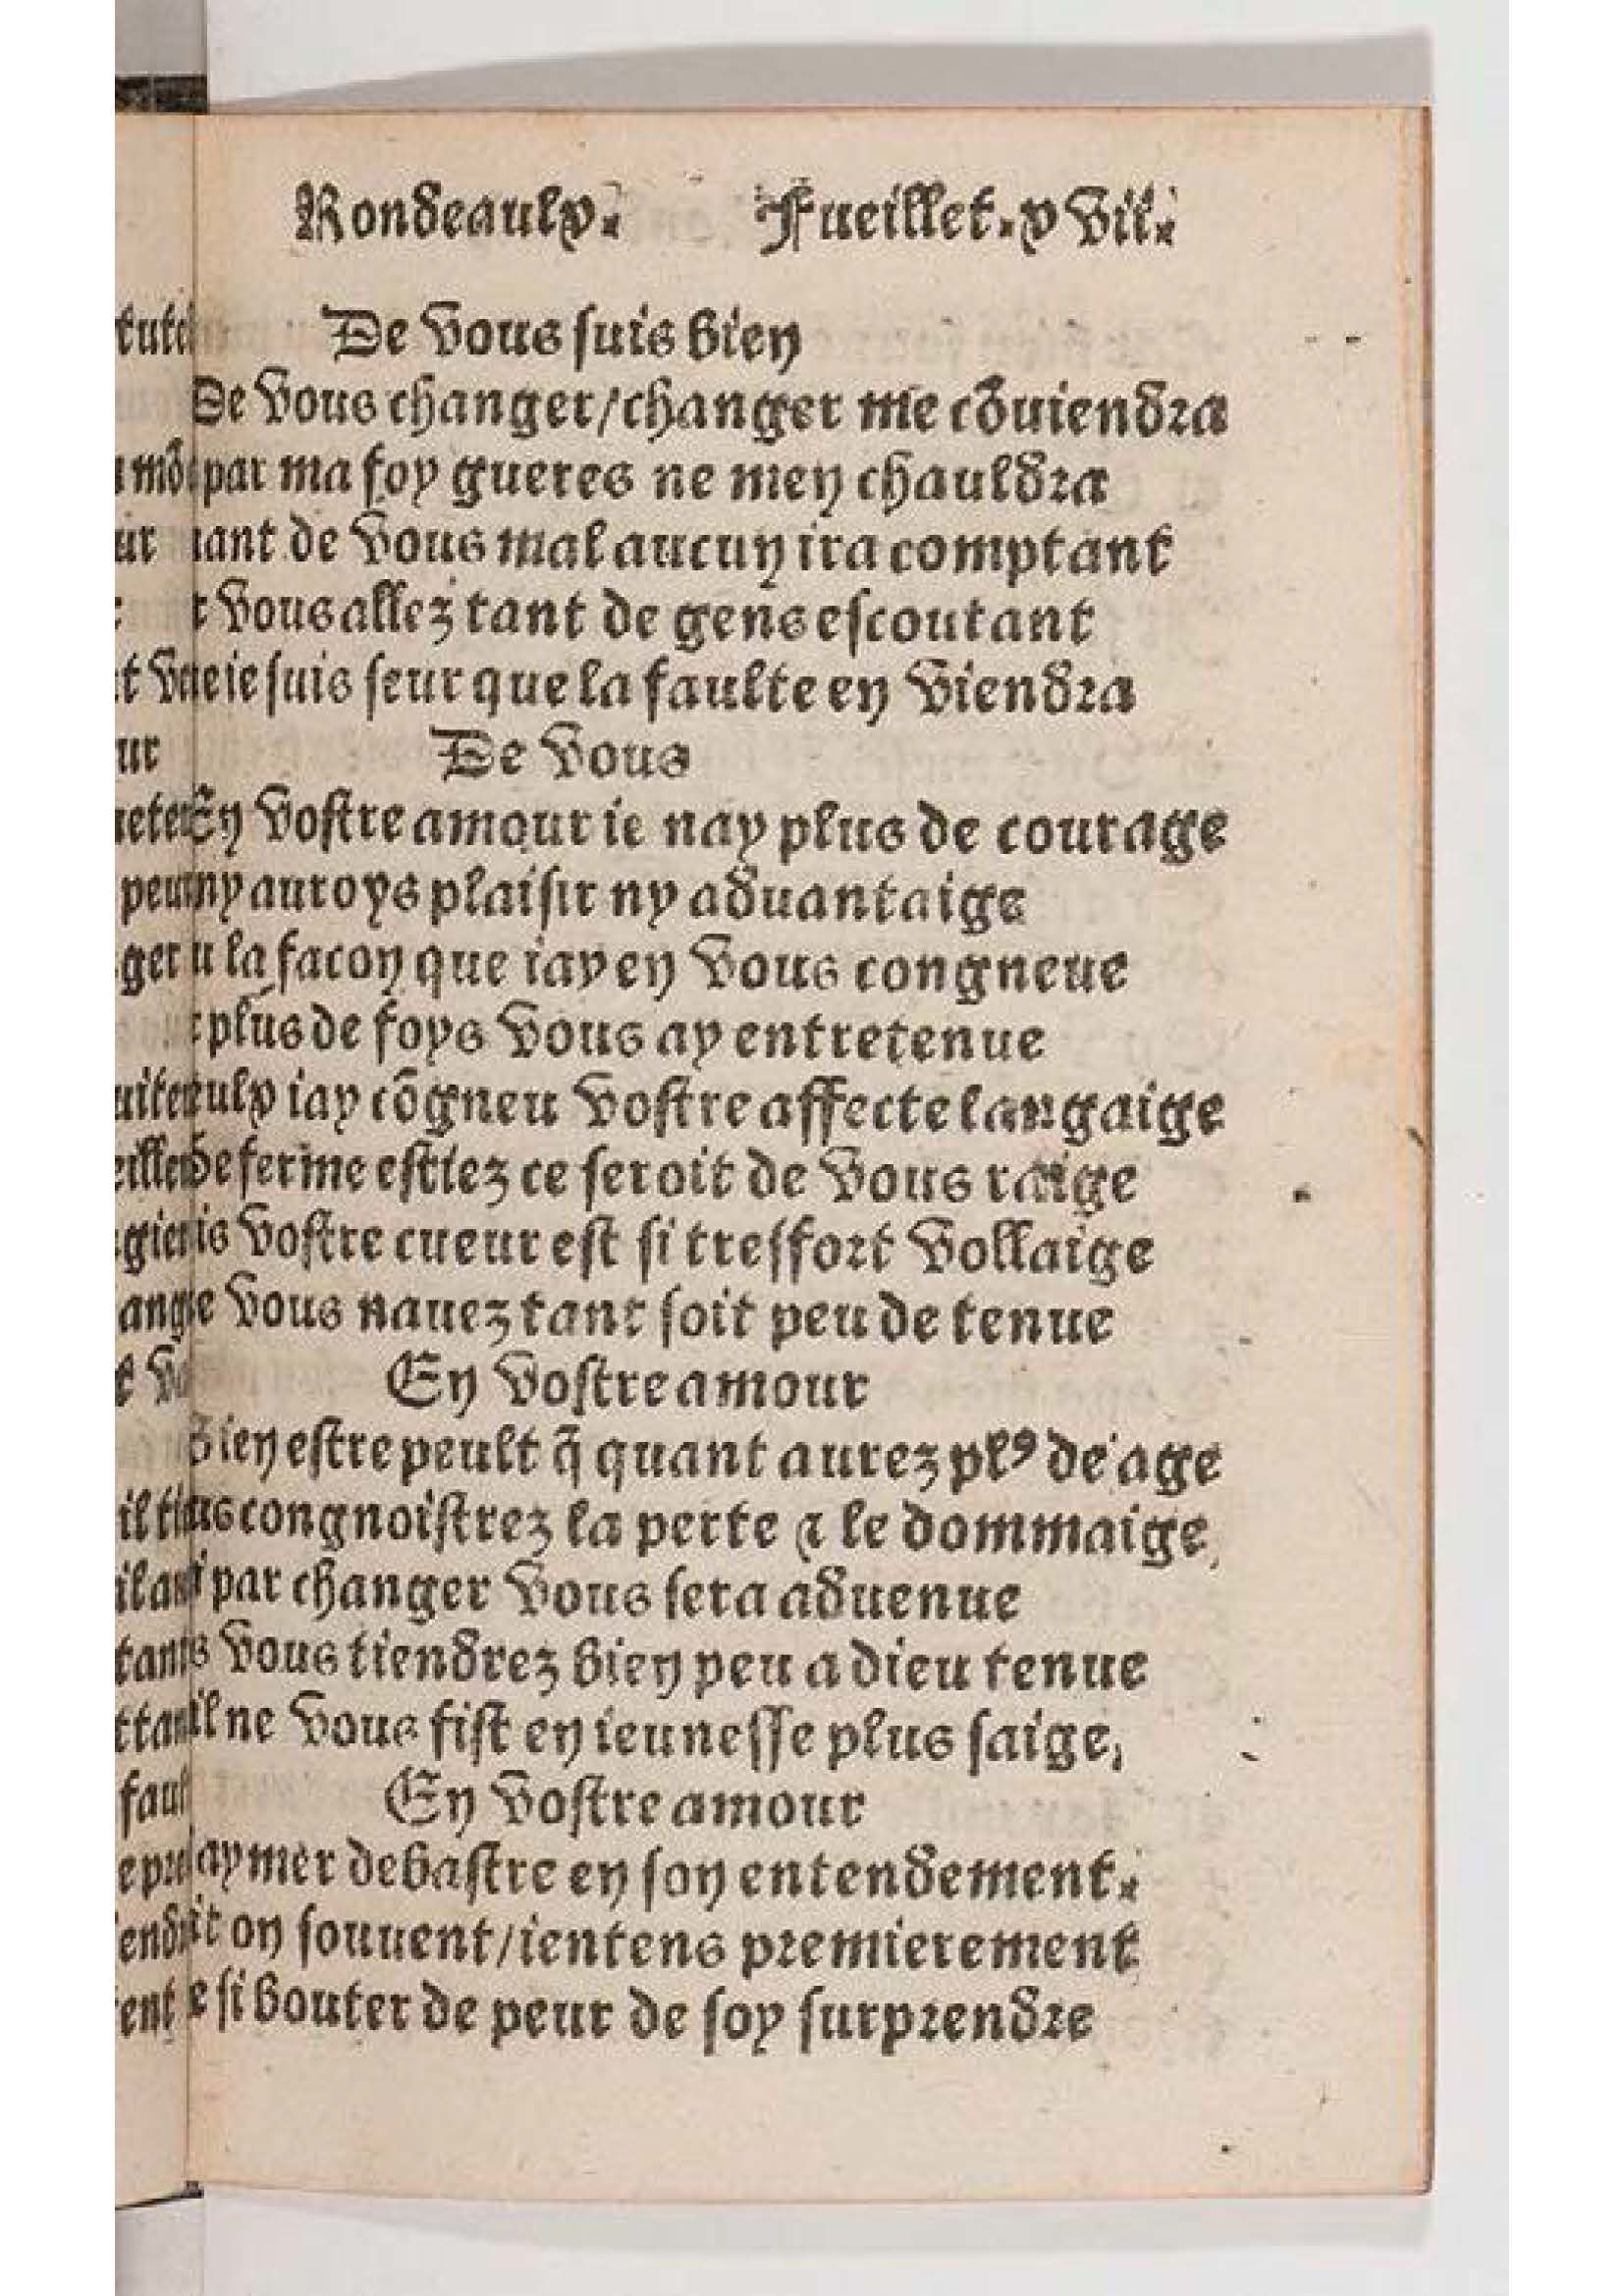 Rondeaulx. Fueillet. xvii.
De vous suis bien
De vous changer/changer me cōuiendra
par ma foy gueres ne men chauldra
ant de vous mal aucun ira comptant
t vous allez tant de gens escoutant
e ie suis seur que la faulte en viendra
De vous
En vostre amour ie nay plus de courage
ny auroys plaisir ny aduantaige
u la facon que iay en vous congneue
t plus de foys vous ay entretenue
eulx iay cōgneu vostre affecte langaige
De ferme estiez ce seroit de vous raige
is vostre cueur est si tresfort vollaige
e vous nauez tant soit peu de tenue
En vostre amour
Bien estre peult q̄ quant aurez plꝰ de age
us congnoistrez la perte & le dommaige
i par changer vous sera aduenue
s vous tiendrez bien peu a dieu tenue
il ne vous fist en ieunesse plus saige,
En vostre amour
aymer debastre en son entendement.
it on souuent/ientens premierement
e si bouter de peur de soy surprendre